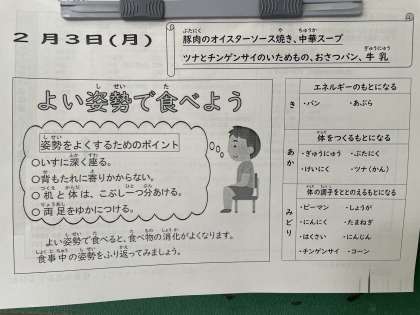 2月3日(月)
豚肉のオイスターソース焼き、中華スープ
ツナとチンゲンサイのいためもの、おさつパン、牛乳
よい姿勢で食べよう
姿勢をよくするためのポイント
○いすに深く座る。
○背もたれに寄りかからない。
○机と体は、こぶし一つ分あける。
○両足をゆかにつける。
よい姿勢で食べると、食べ物の消化がよくなります。
食事中の姿勢をふり返ってみましょう。
エネルギーのもとになる
き
・パン ・あぶら
体をつくるもとになる
あか
・ぎゅうにゅう ・ぶたにく
・けいにく ・ツナ(かん)
体の調子をととのえるもとになる
みどり
・ピーマン ・しょうが
・にんにく ・たまねぎ
・はくさい ・にんじん
・チンゲンサイ ・コーン